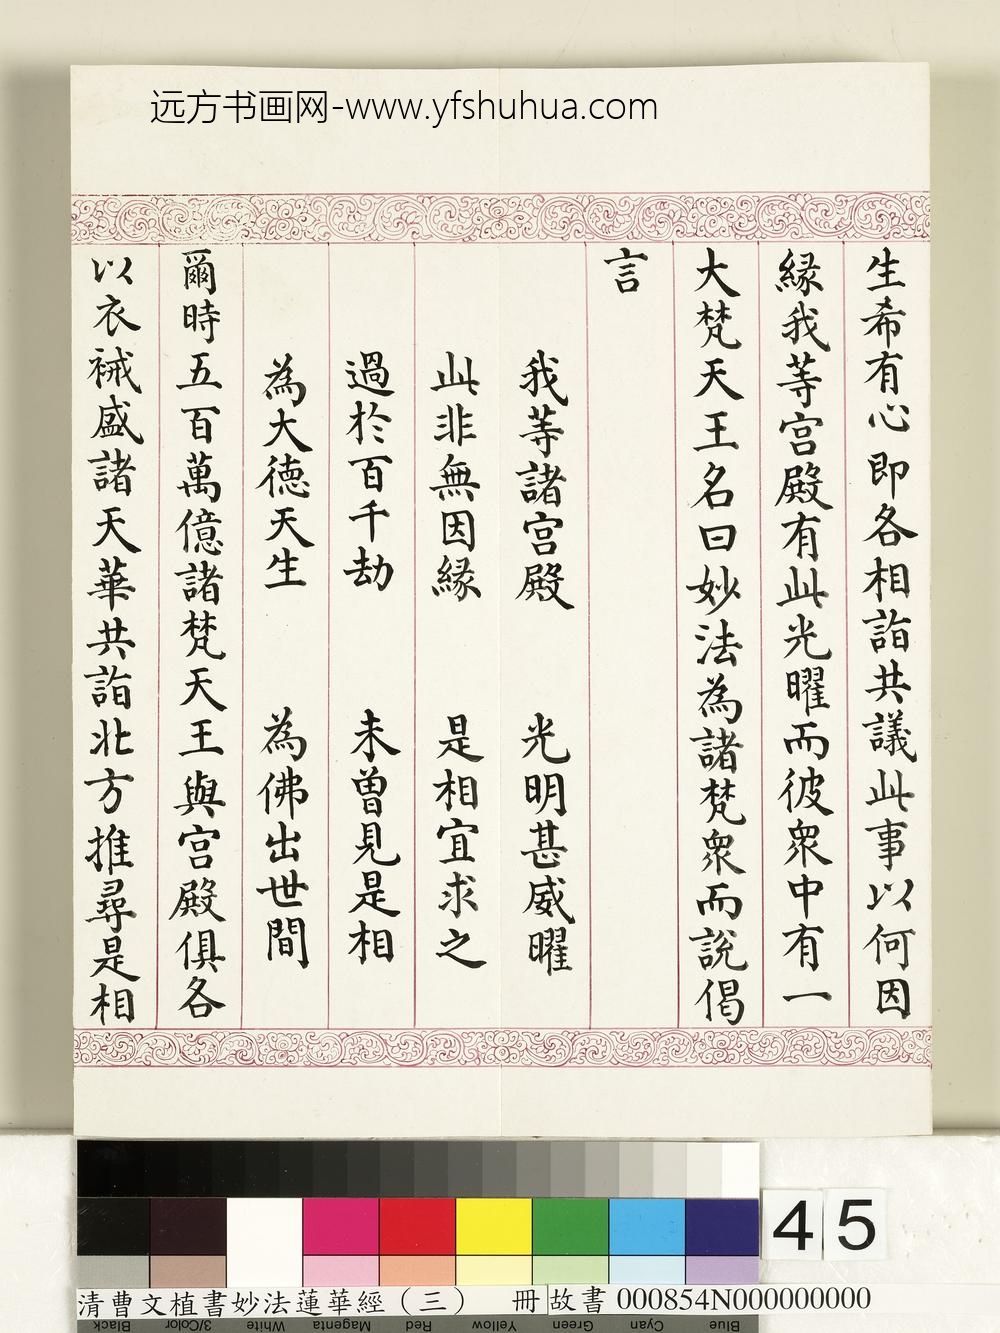 远方书画网-www.yfshuhua.com
生希有心即各相詣共議此事以何因
緣我等宫殿有此光曜而彼衆中有一
大梵天王名曰妙法為諸梵衆而說偈
言
我等諸宫殿　光明甚威曜
此非無因緣　是相宜求之
過於百千劫　未曾見是相
為大德天生　為佛出世間
爾時五百萬億諸梵天王與宫殿俱各
以衣裓盛諸天華共詣北方推尋是相
45
清曹文植書妙法蓮華經（三）　冊 故書 000854N000000000
Black 3/Color White Magenta Red Yellow Green Cyan Blue